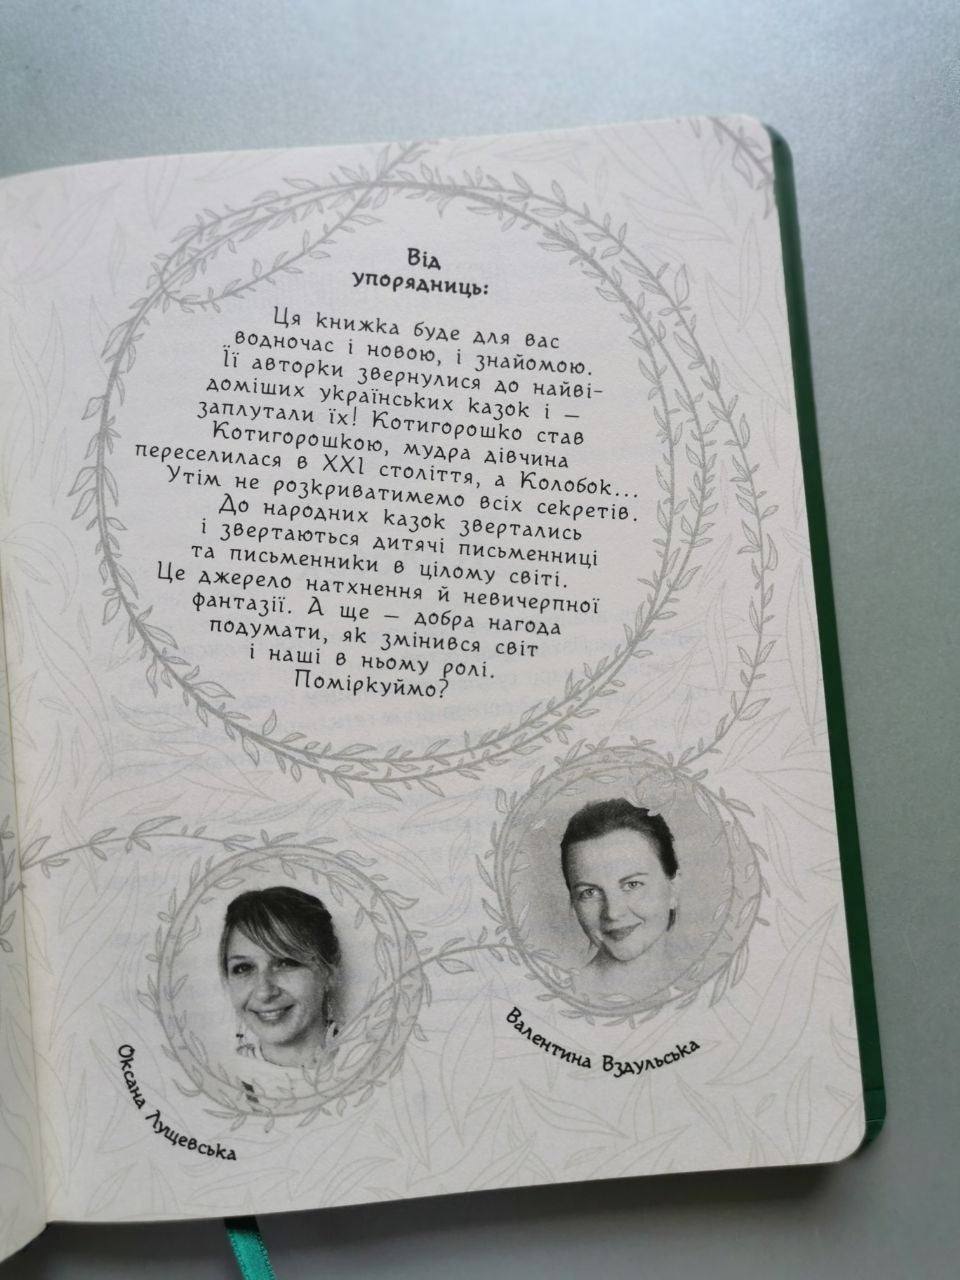 Від
упорядниць:
Ця книжка буде для вас
водночас і новою, і знайомою.
Її авторки звернулися до найві-
доміших українських казок і —
заплутали їх! Котигорошко став
Котигорошкою, мудра дівчина
переселилася в XXI століття, а Колобок...
Утім не розкриватимемо всіх секретів.
До народних казок звертались
і звертаються дитячі письменниці
та письменники в цілому світі.
Це джерело натхнення й невичерпної
фантазії. А ще — добра нагода
подумати, як змінився світ
і наші в ньому ролі.
Поміркуймо?
Оксана Лущевська
Валентина Вздульська